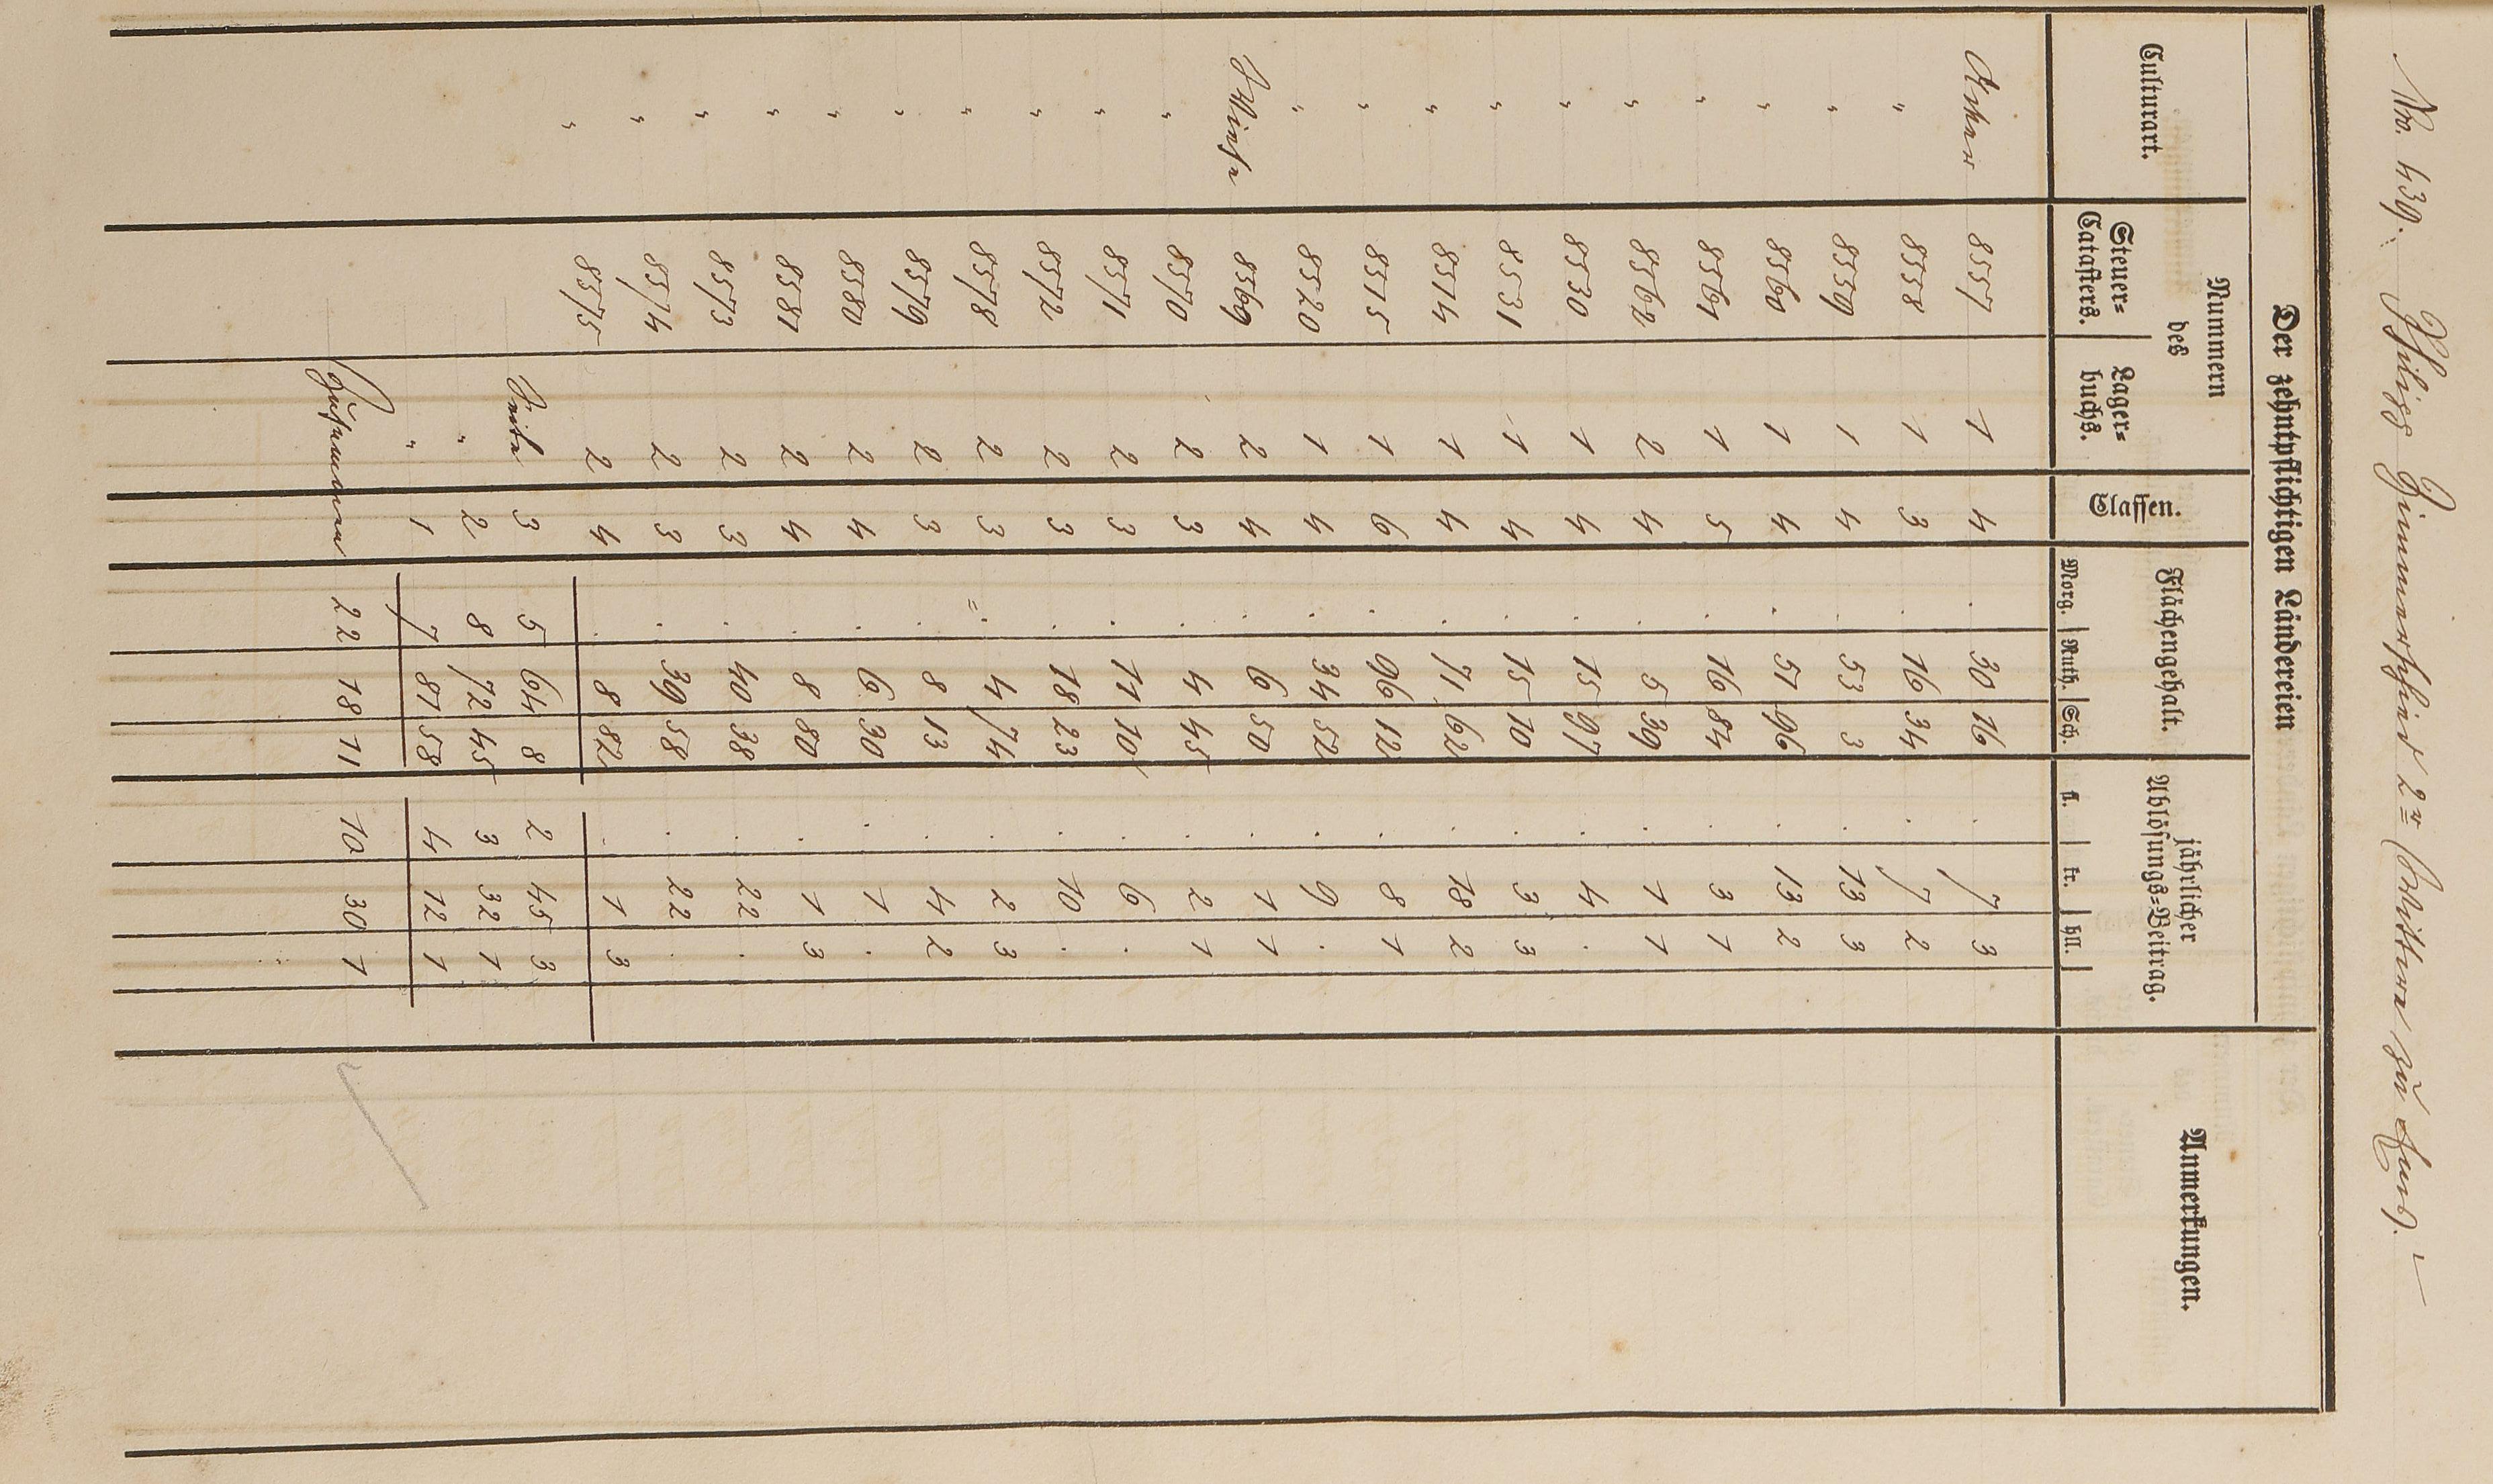 Nro. 439. Philipp Zimmerschied 2r (Christians zu Ems). –
Der zehntpflichtigen Ländereien
Culturart. | Nummern des | Classen. | Flächengehalt. | jährlicher Ablösungs=Beitrag. | Anmerkungen.
Steuer= Catasters. | Lager= buchs. | Morg. | Ruth. | Sch. | fl. | kr. | hll.
Acker 8557 1 4 . 30 16 . 7 3
" 8558 1 3 . 16 34 . 7 2
" 8559 1 4 . 53 3 . 13 3
" 8560 1 4 . 51 96 . 13 2
" 8561 1 5 . 16 84 . 3 1
" 8562 2 4 . 5 39 . 1 1
" 8530 1 4 . 15 97 . 4 .
" 8531 1 4 . 15 10 . 3 3
" 8514 1 4 . 71 62 . 18 2
" 8515 1 6 . 96 12 . 8 1
" 8520 1 4 . 34 52 . 9 .
Wiese 8569 2 4 . 6 50 . 1 1
" 8570 2 3 . 4 45 . 2 1
" 8571 2 3 . 11 10 . 6 .
" 8572 2 3 . 18 23 . 10 .
" 8578 2 3 . 4 74 . 2 3
" 8579 2 3 . 8 13 . 4 2
" 8580 2 4 . 6 30 . 1 .
" 8581 2 4 . 8 80 . 1 3
" 8573 2 3 . 40 38 . 22 .
" 8574 2 3 . 39 58 . 22 .
" 8575 2 4 . 8 82 . 1 3
Seite 3 5 64 8 2 45 3
" 2 8 72 45 3 32 1
" 1 7 81 58 4 12 1
Zusammen 22 18 11 10 30 1